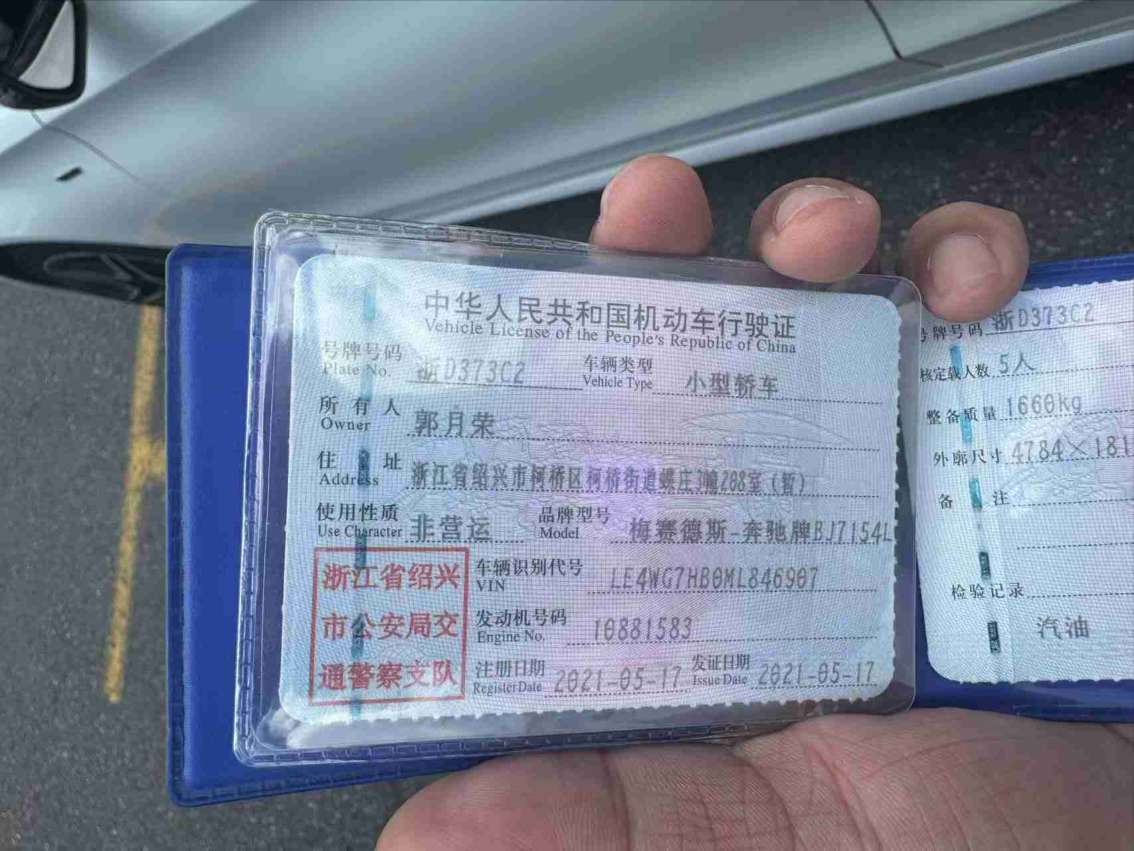 中华人民共和国机动车行驶证
Vehicle License of the People's Republic of China
号牌号码 浙D373C2 车辆类型 小型轿车
Plate No. Vehicle Type
所有人 郭月荣
Owner
住址 浙江省绍兴市柯桥区柯桥街道蝶庄3幢208室（暂）
Address
使用性质 非营运 品牌型号 梅赛德斯-奔驰牌BJ7154L
Use Character Model
浙江省绍兴
市公安局交
通警察支队
车辆识别代号 LE4WG7HB0ML846907
VIN
发动机号码 10881583
Engine No.
注册日期 2021-05-17 发证日期 2021-05-17
Register Date Issue Date
号牌号码 浙D373C2
核定载人数 5人
整备质量 1660kg
外廓尺寸 4784×181
备注
检验记录
汽油